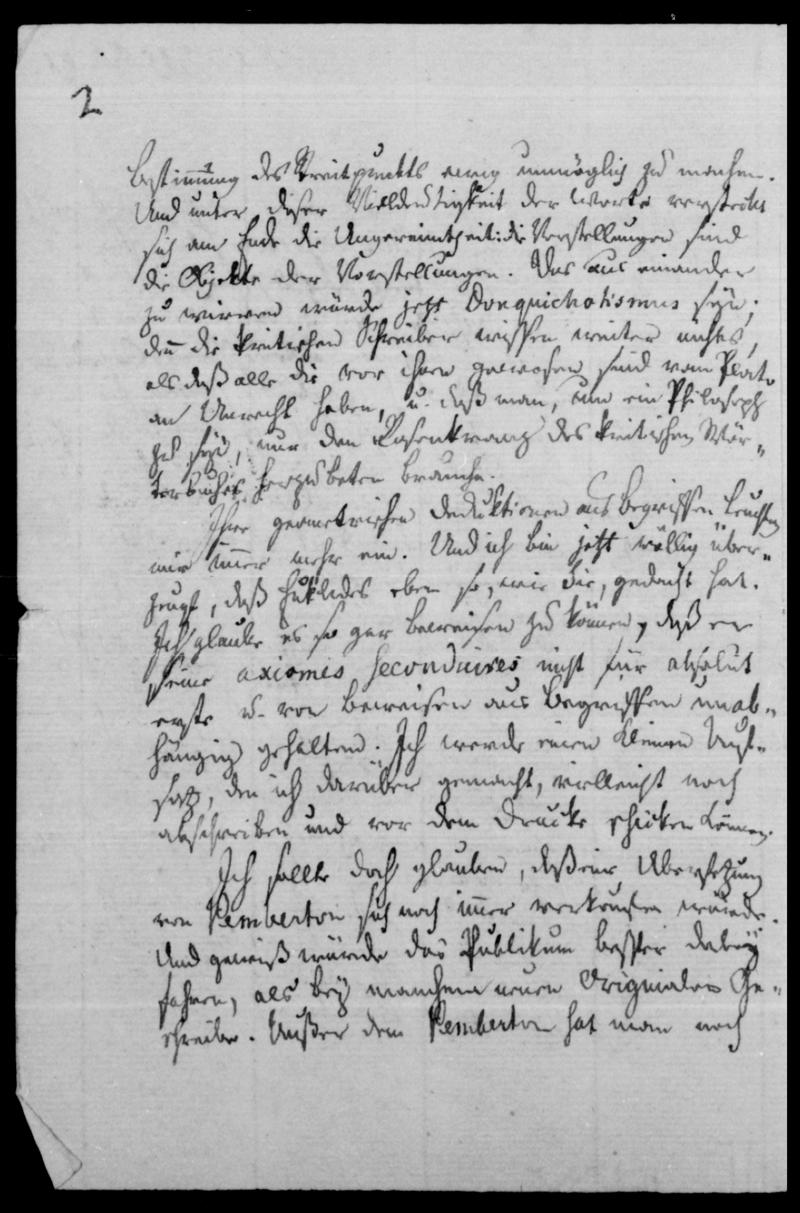 2
Bestim̄ung des Streitpunkts ewig unmöglich zu machen.
Und unter dieser Vieldeutigkeit der Worte versteckt
sich am Ende die Ungereimtheit: die Vorstellungen sind
die Objekte der Vorstellungen. Das aus einander
zu wirren würde jetzt Donquichotismus seyn;
den̄ die kritischen Schreiber wissen weiter nichts,
als daß alle die vor ihnen gewesen sind vom Plato
an Unrecht haben, u. daß man, um ein Philosoph
zu seyn, nur den Rosenkranz des kritischen Wör-
terbuches herzubeten brauche.
Ihre geometrischen Deduktionen aus Begriffen leuchten
mir im̄er mehr ein. Und ich bin jetzt völlig über-
zeugt, daß Euklides eben so, wie Sie, gedacht hat.
Ich glaube es so gar beweisen zu können, daß er
seine axiomes secondaires nicht für absolut
erste u. von Beweisen aus Begriffen unab-
hängig gehalten. Ich werde einen kleinen Auf-
satz, den ich darüber gemacht, vielleicht noch
abschreiben und vor dem Drucke schicken können.
Ich sollte doch glauben, daß eine Übersetzung
von Pemberton sich noch im̄er verkaufen würde.
Und gewiß würde das Publikum besser dabey
fahren, als bey manchem neuen Originalen Ge-
schreibe. Außer dem Pemberton hat man noch